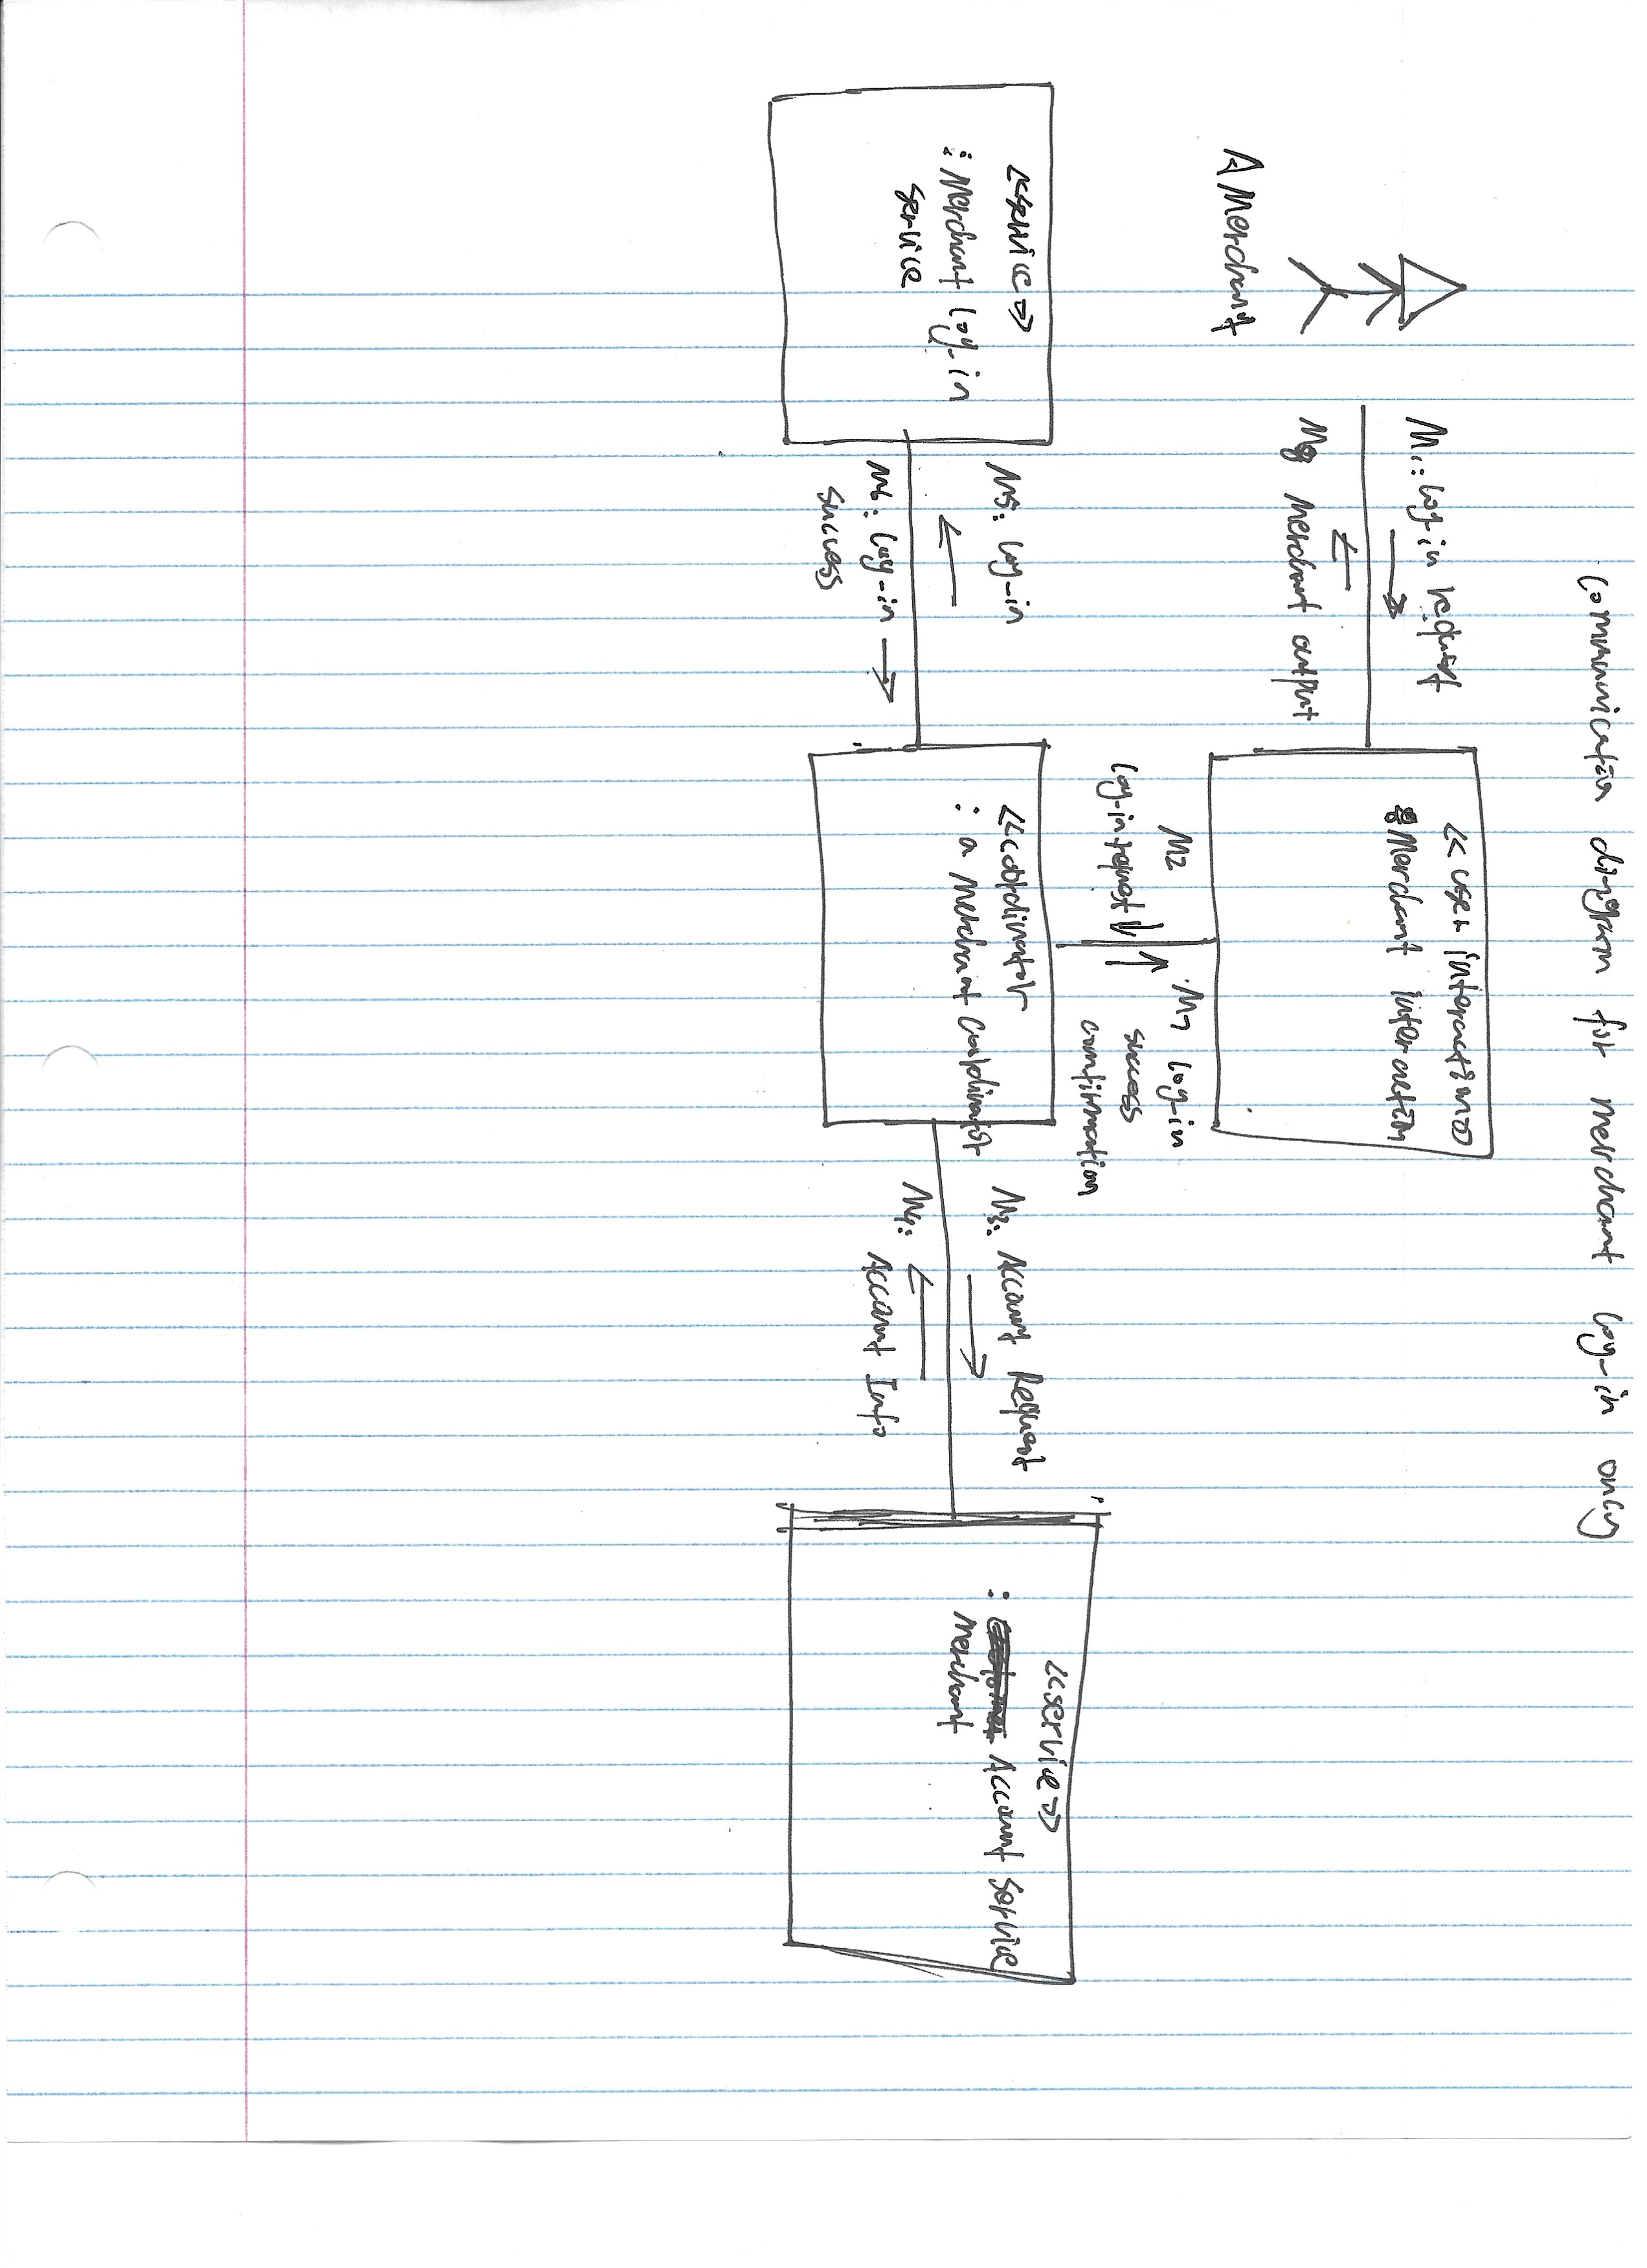 communication diagram for merchant log-in only
<< user interaction >>
: Merchant interaction
M1: log-in request
M8 Merchant output
A Merchant
M2
log-in request
M7 log-in
success
comfirmation
<<service>>
: Merchant log-in
service
M5: log-in
M6: log-in
success
<<coordinator
: a merchant coordinator
M3: Account Request
M4:
Account Info
<<service>>
: Account Service
merchant